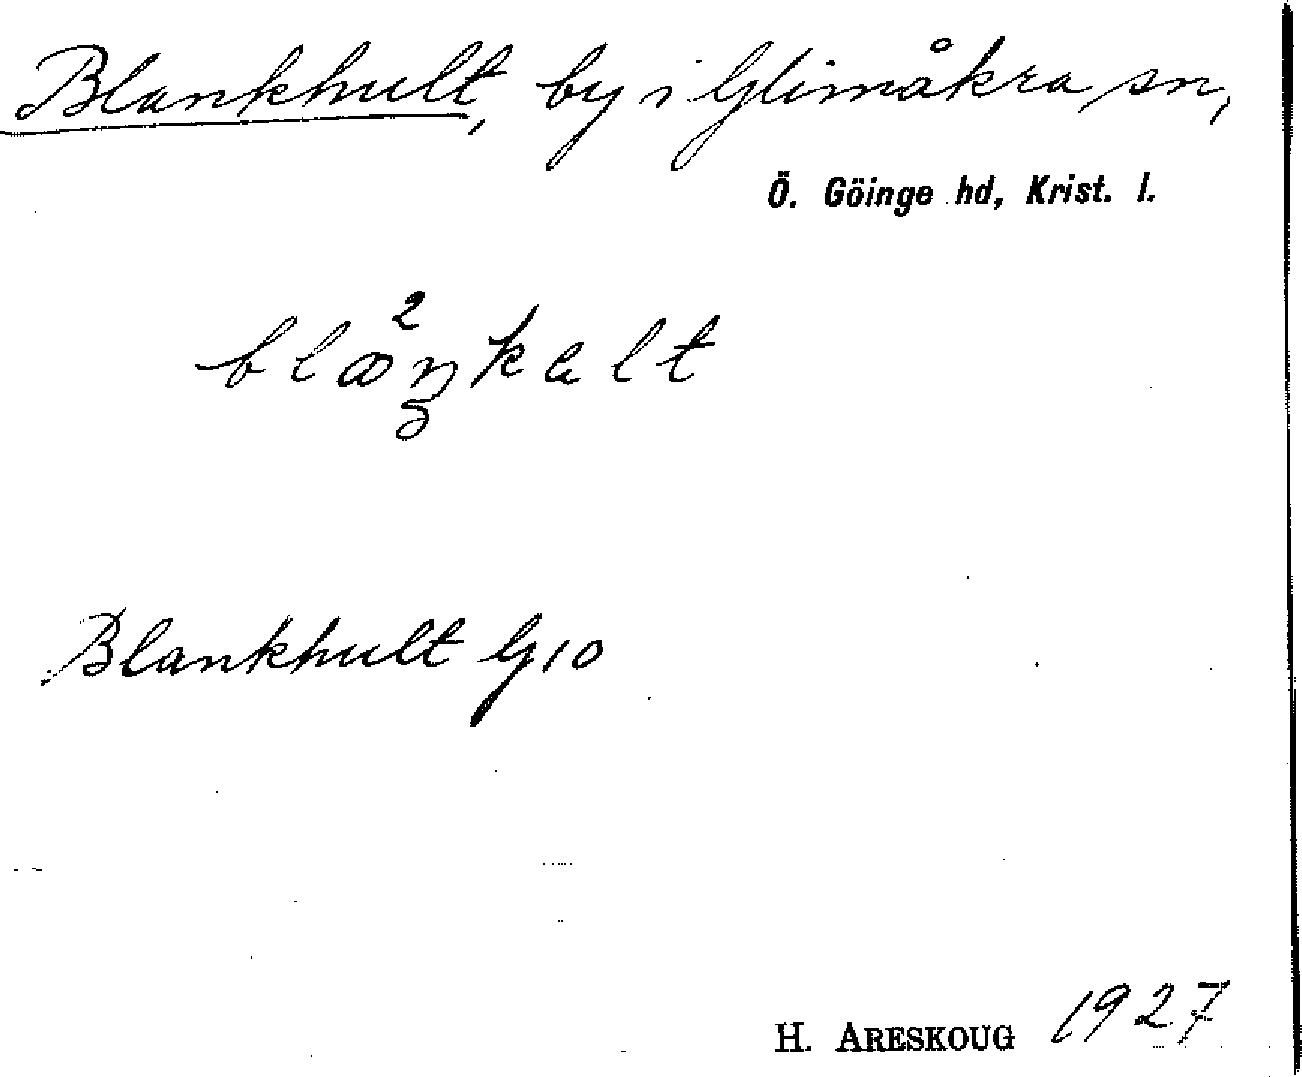 Blankhult, by i Glimåkra sn,
Ö. Göinge hd, Krist. l.
Blankhult G 10
H. ARESKOUG 1927